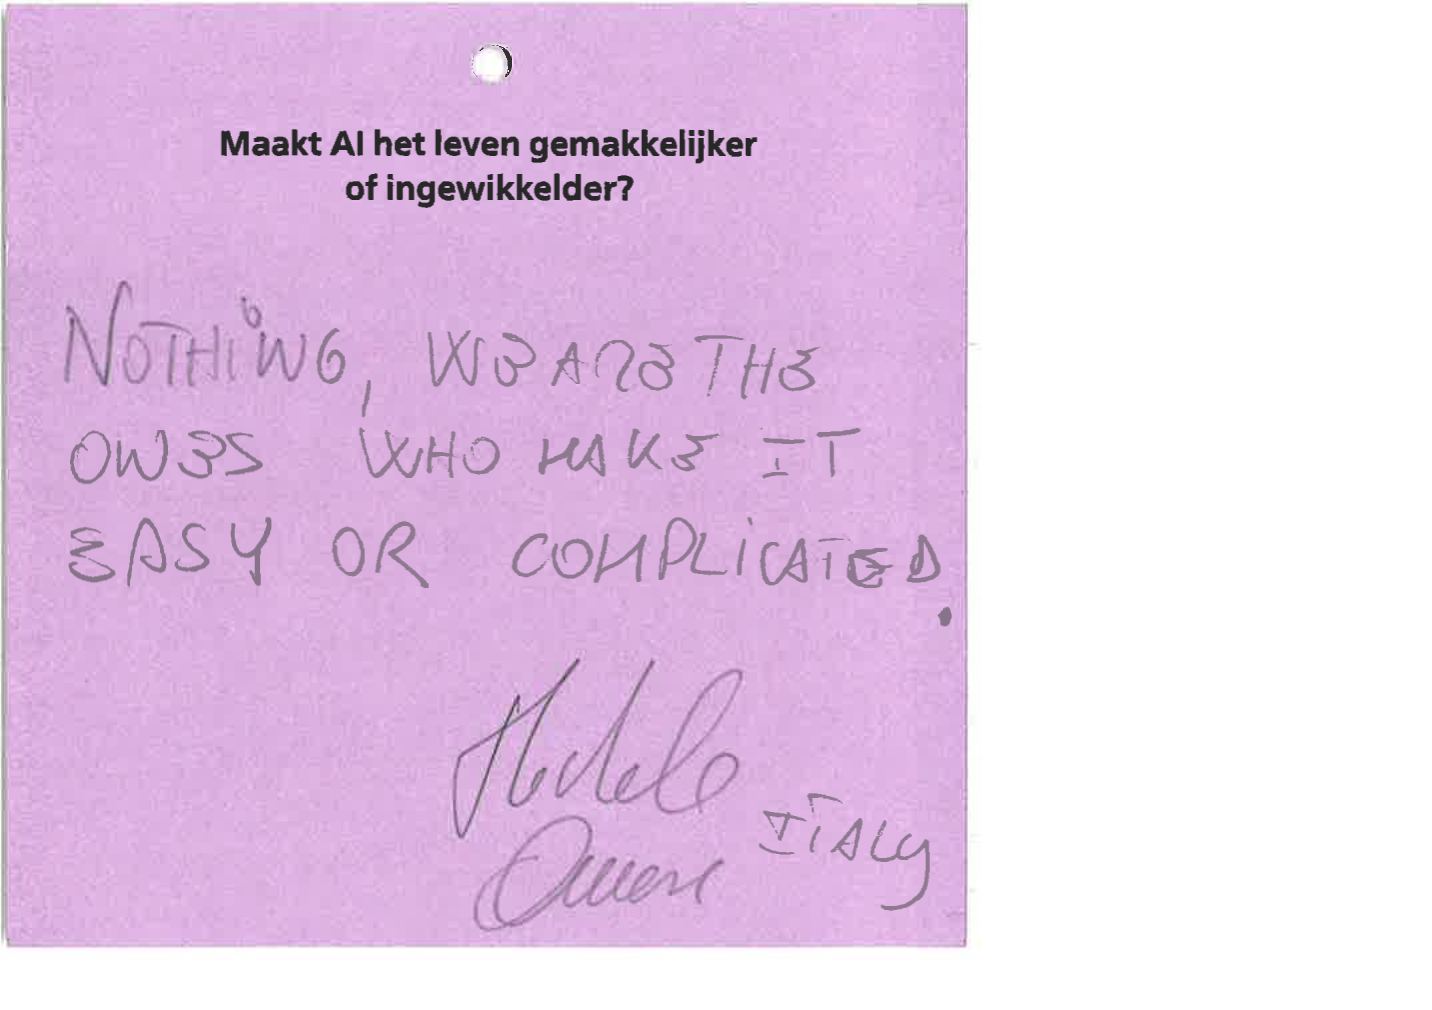 Maakt AI het leven gemakkelijker
of ingewikkelder?
NOTHING, WE ARE THE
ONES WHO MAKE IT
EASY OR COMPLICATED.
Michele
ITALY